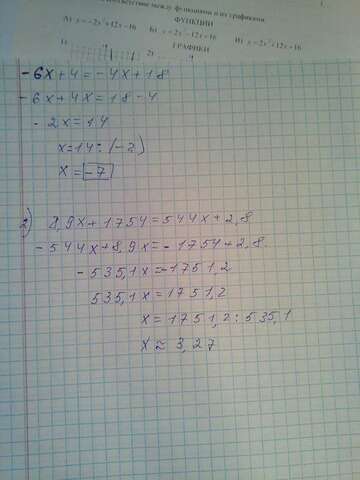 соответствие между функциями и их графиками.
ФУНКЦИИ
А) y = -2x² + 12x - 16 Б) y = -2x² - 12x - 16 В) y = 2x² - 12x + 16
ГРАФИКИ
1) 2)
-6x+4=-4x+18
-6x+4x=18-4
-2x=14
x=14:(-2)
x=-7
2) 8,9x+1754=544x+2,8
-544x+8,9x=-1754+2,8
-535,1x=-1751,2
535,1x=1751,2
x=1751,2:535,1
x≈3,27